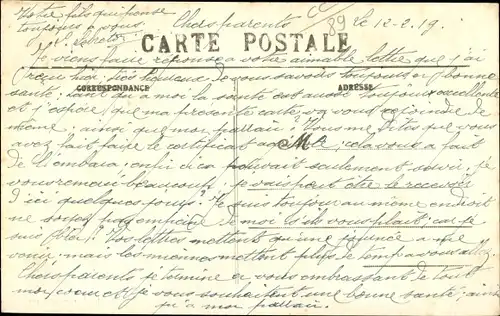 Votre fils qui pense
toujours à vous
Chers parents
89
le 12-2-19.
CARTE POSTALE
CORRESPONDANCE
ADRESSE
Je viens faire réponse a votre aimable lettre que j'ai
reçu hier, très heureux de vous savoir toujours en bonne
santé, tant qu'a moi la santé est aussi toujours excellente
et j'espère que ma présente carte vous rejoindre de
même, ainsi que mon Vous me dites que vous
avez fait faire le certificat au M cela vous a fait
de l'embara enfin si ca pouvait seulement servir, je
vous remercie beaucoup, je vais peut être le recevoir
d'ici quelques jours. Je suis toujours au même endroit
ne soyez pas en peine de moi s'il vous plait, car je
suis Vos lettres mettent qu'une journée a me
venir, mais les miennes mettent plus de temp a vous
Chers parents je termine en vous embrassant de tout
mon cœur et je vous souhaitent une bonne santé, ainsi
qu'a mon